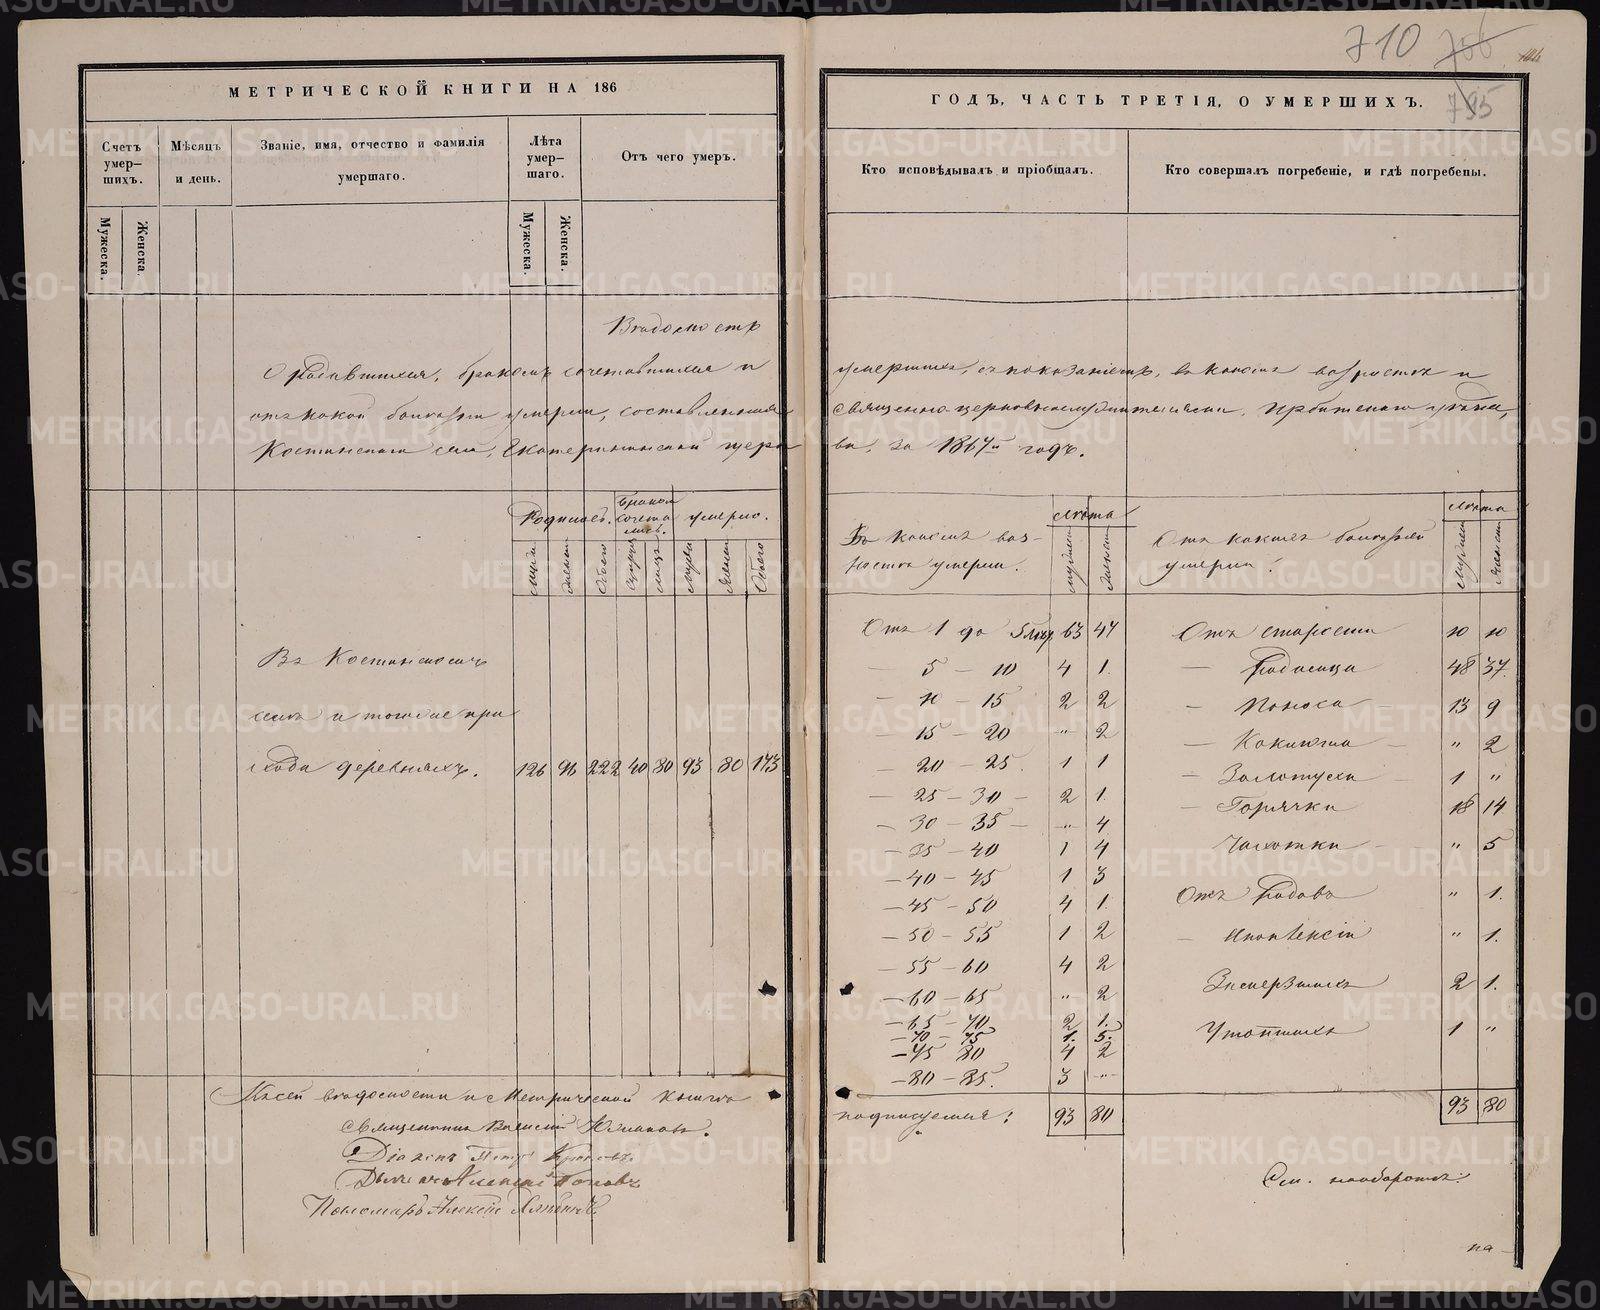 710 706
795
МЕТРИЧЕСКОЙ КНИГИ НА 186
ГОДЪ, ЧАСТЬ ТРЕТІЯ, О УМЕРШИХЪ.
Счетъ умер-шихъ.
Мѣсяцъ и день.
Званіе, имя, отчество и фамилія умершаго.
Лѣта умер-шаго.
Отъ чего умеръ.
Кто исповѣдывалъ и пріобщалъ.
Кто совершалъ погребеніе, и гдѣ погребены.
Мужеска.
Женска.
Мужеска.
Женска.
Вѣдомость
О родившихся, бракомъ сочетавшихся и
умершихъ, съ показаніемъ, въ какихъ возрастахъ и
отъ какой болѣзни умерли, составленная
священно-церковнослужителями, Ирбитскаго уѣзда,
Костинскаго села, Екатерининской церк
ви, за 1867й годъ.
Родилось.
бракомъ сочета лись.
умерло.
Обоего
Обоего
Въ какихъ воз-
растахъ умерли.
лѣта
Отъ какихъ болѣзней
умерли?
лѣта
Въ Костинскомъ
селѣ и того же при
хода деревняхъ. 126 96 222 40 80 93 80 173
Отъ 1 до 5 лѣтъ 63 47
— 5 — 10 4 1.
— 10 — 15 2 2
— 15 — 20 " 2
— 20 — 25. 1 1
— 25 — 30 — 2 1.
— 30 — 35 — " 4
— 35 — 40 1 4
— 40 — 45 1 3
— 45 — 50 4 1.
— 50 — 55 1 2
— 55 — 60 4 2
— 60 — 65 " 2
— 65 — 70 2 1.
— 70 — 75 1. 5.
— 75 80 4 2
— 80 — 85. 3 "
93 80
Отъ старости 10 10
— Родимца 48 37.
— Поноса 13 9
— Коклюша — " 2
— Золотухи 1 "
— Горячки 18 14
Чахотки " 5
Отъ Родовъ " 1.
— Апоплексіи " 1.
Замерзшихъ 2 1.
Утопшихъ 1 "
93 80
Къ сей вѣдомости и Метрической книгѣ
подписуемся:
Священникъ Василій
Діаконъ Петръ
Дьячекъ Алексій Поповъ
Пономарь Алексій
См. на оборотѣ:
на
METRIKI.GASO-URAL.RU